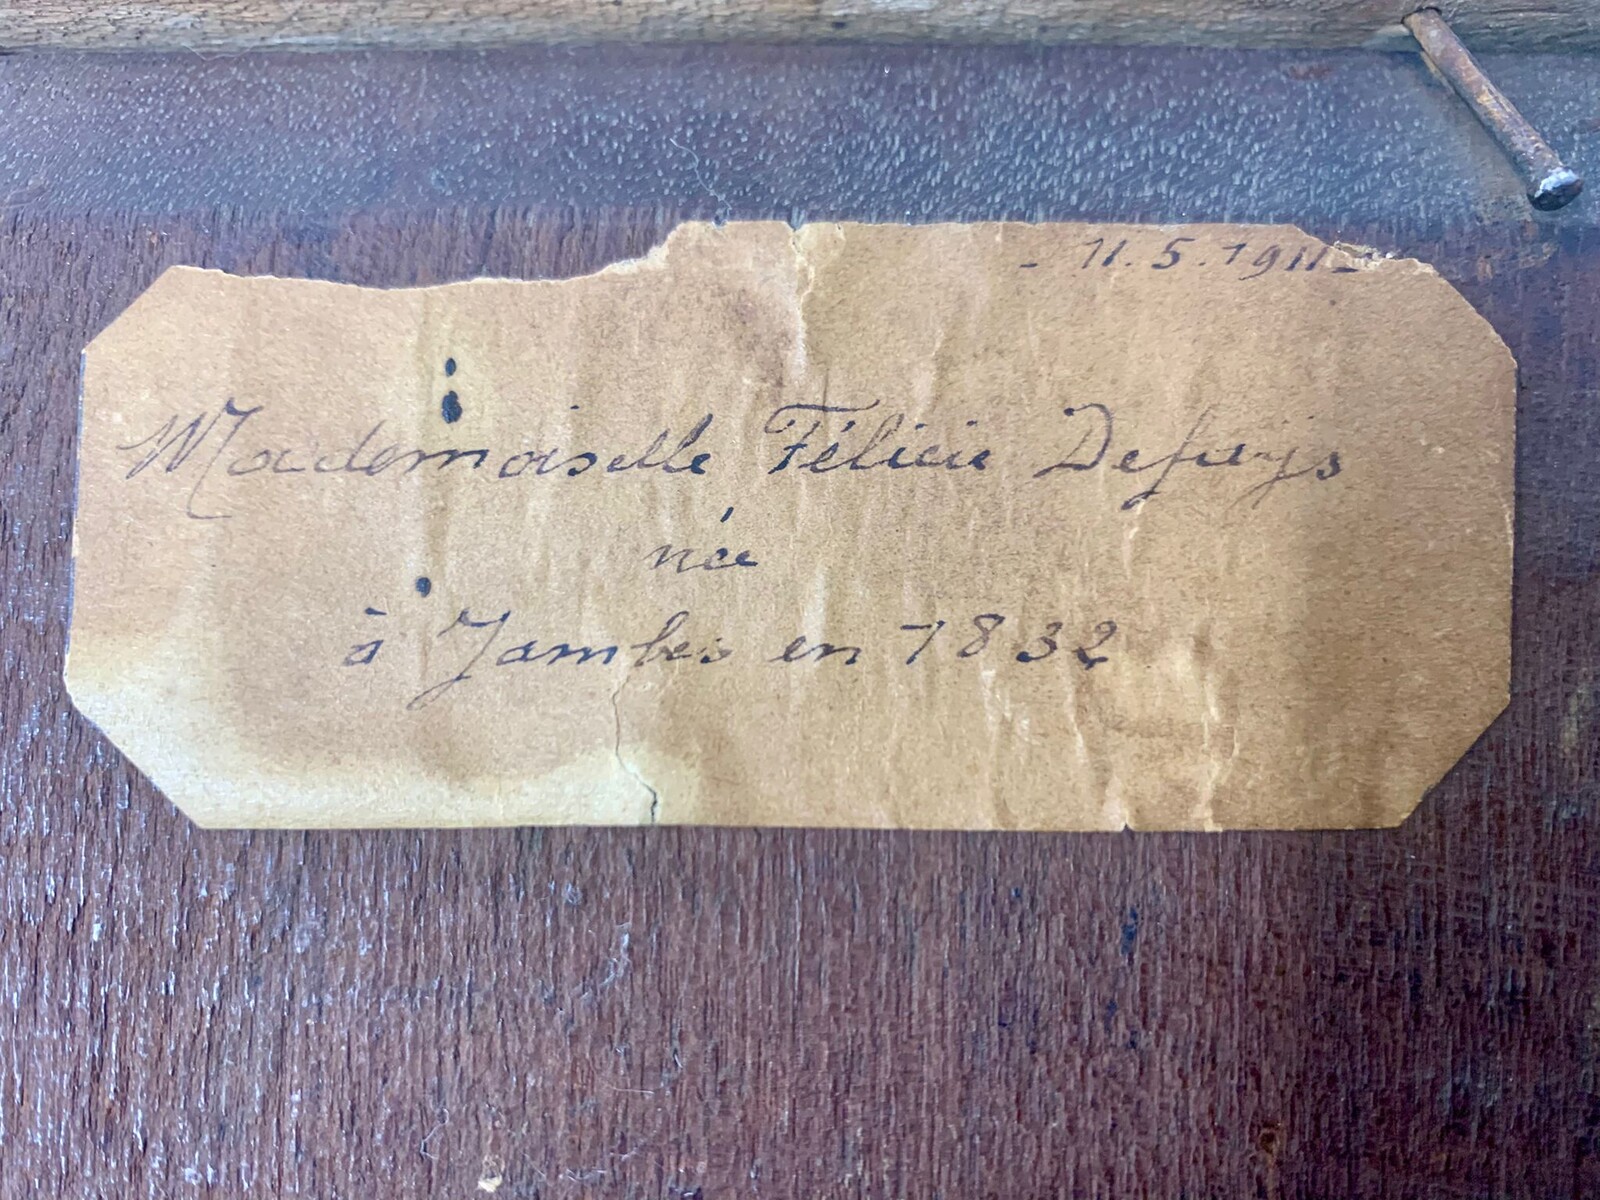 - 11.5.1911 -
Mademoiselle Félicie Defuijs
née
à Jambes en 1832